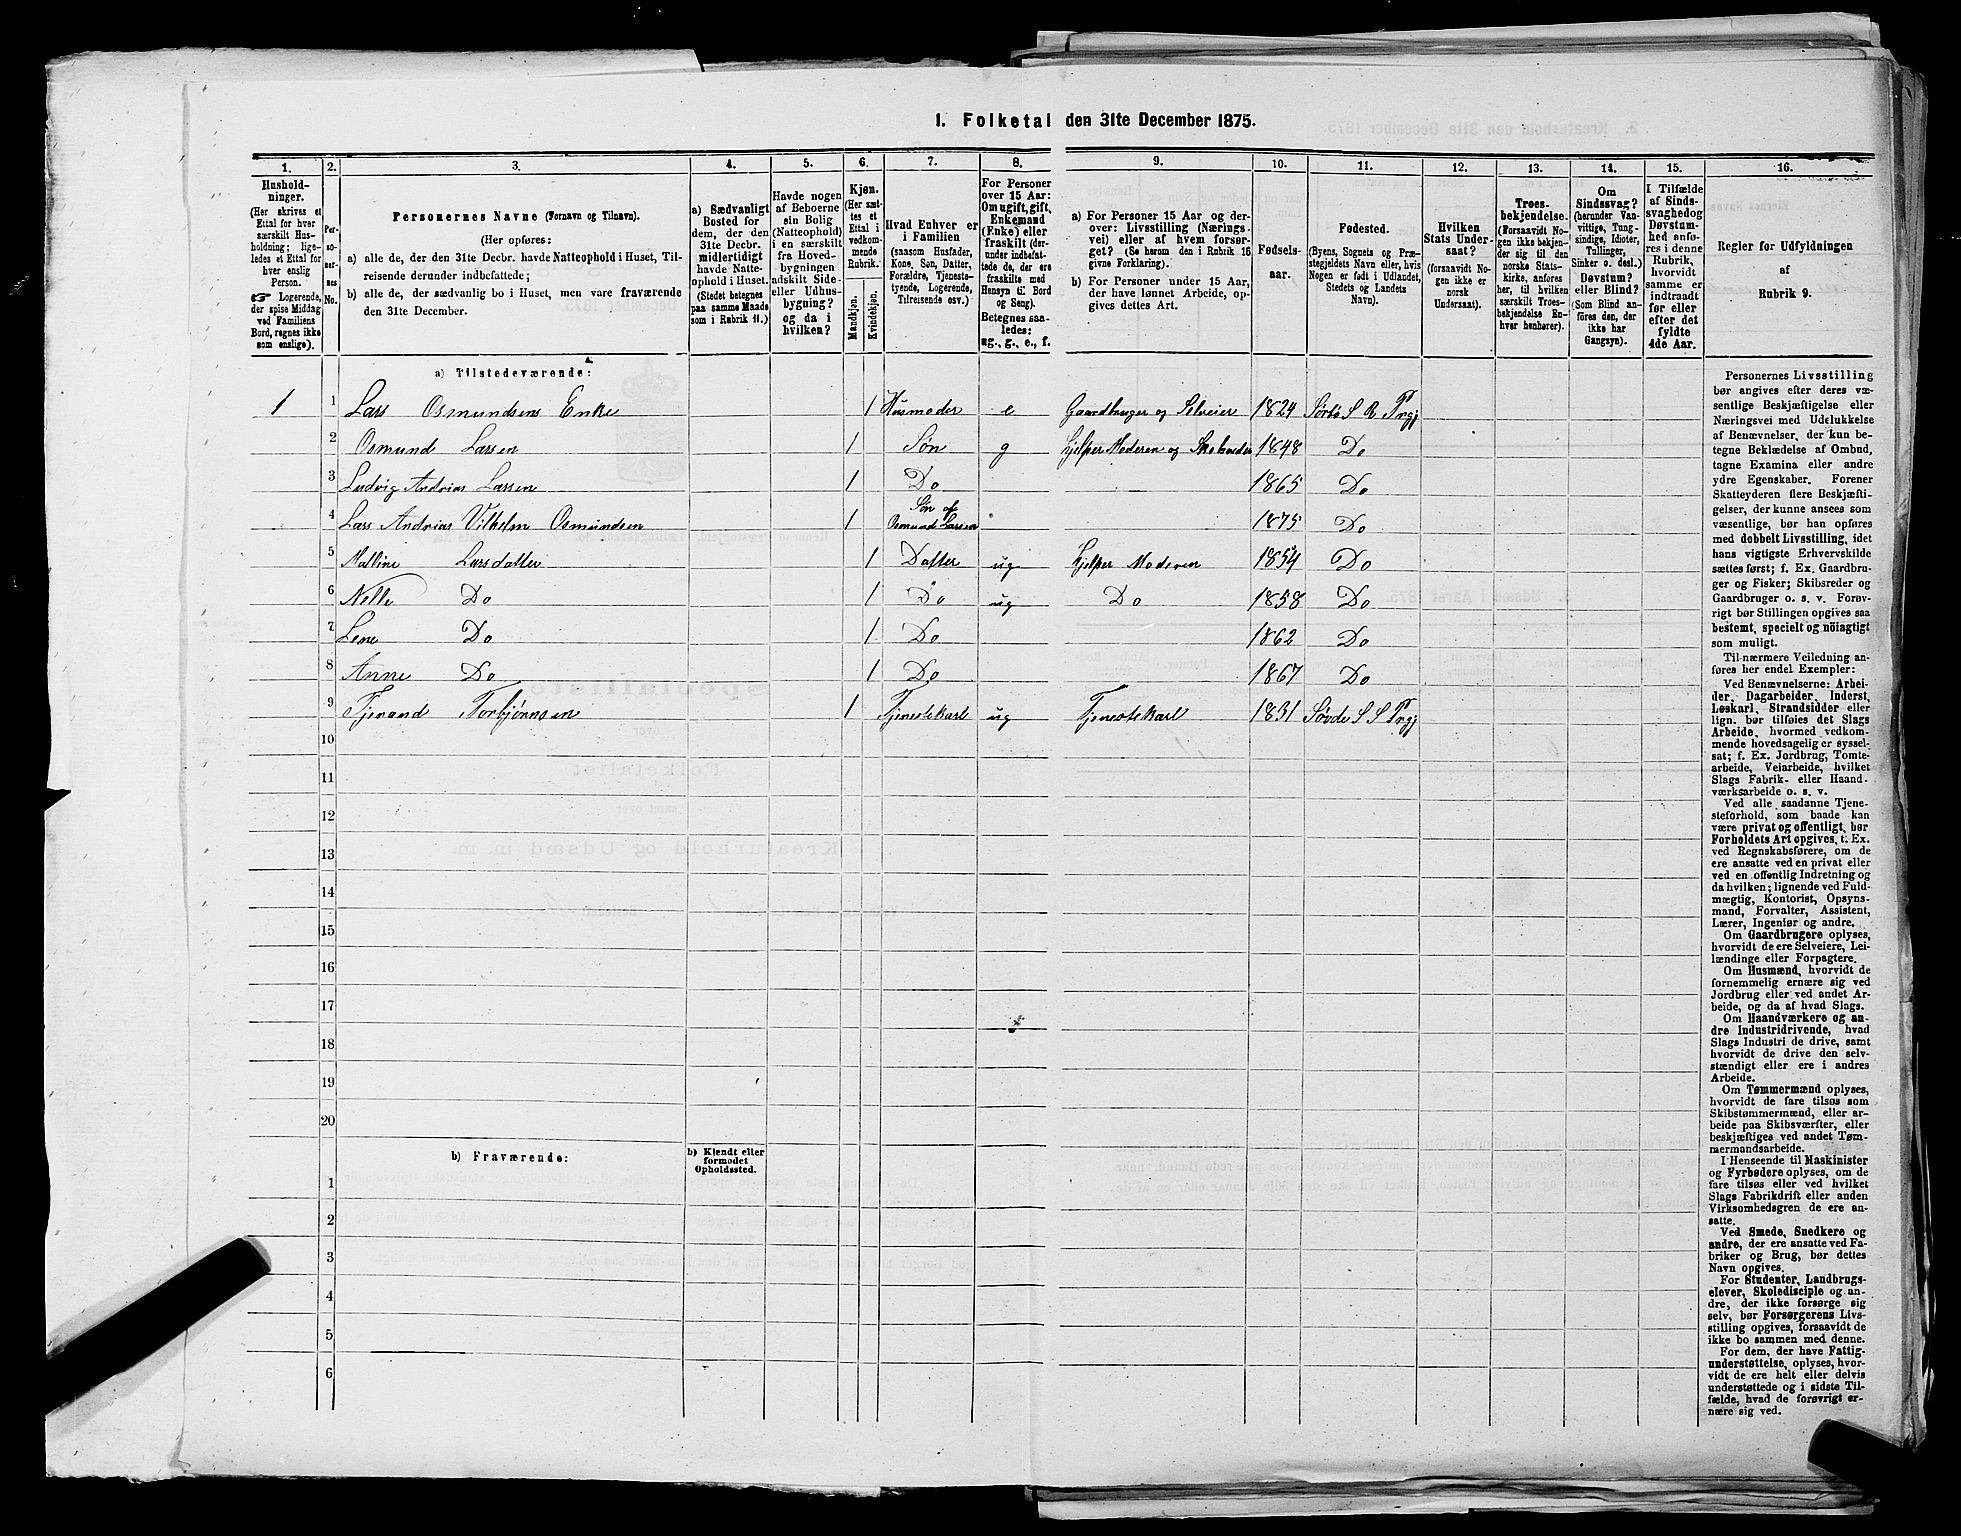 1. Folketal den 31te December 1875.
1. 2. 3. 4. 5. 6. 7. 8. 9. 10. 11. 12. 13. 14. 15. 16.
Hushold-
ninger.
(Her skrives et
Ettal for hver
særskilt Hus-
holdning; lige-
ledes et Ettal for
hver enslig
Person.
☞ Logerende,
der spise Middag
ved Familiens
Bord, regnes ikke
som enslige).
Per-
so-
ner-
nes
No.
Personernes Navne (Fornavn og Tilnavn).
(Her opføres:
a) alle de, der den 31te Decbr. havde Natteophold i Huset, Til-
reisende derunder indbefattede;
b) alle de, der sædvanlig bo i Huset, men vare fraværende
den 31te December.
a) Sædvanligt
Bosted for
dem, der den
31te Decbr.
midlertidigt
havde Natte-
ophold i Huset.
(Stedet betegnes
paa samme Maade
som i Rubrik 11.)
Havde nogen
af Beboerne
sin Bolig
(Natteophold)
i en særskilt
fra Hoved-
bygningen
adskilt Side-
eller Udhus-
bygning?
og da i
hvilken?
Kjøn.
(Her sæt-
tes et
Ettal i
vedkom-
mende
Rubrik.)
Mandkjøn.
Kvindekjøn.
Hvad Enhver er
i Familien
(saasom Husfader,
Kone, Søn, Datter,
Forældre, Tjeneste-
tyende, Logerende,
Tilreisende osv.)
For Personer
over 15 Aar:
Om ugift, gift,
Enkemand
(Enke) eller
fraskilt (der-
under indbefat-
tede de, der ere
fraskilte med
Hensyn til Bord
og Seng).
Betegnes saa-
ledes:
ug., g., e., f.
a) For Personer 15 Aar og der-
over: Livsstilling (Nærings-
vei) eller af hvem forsør-
get? (Se herom den i Rubrik 16
givne Forklaring).
b) For Personer under 15 Aar,
der have lønnet Arbeide, op-
gives dettes Art.
Fødsels-
aar.
Fødested.
(Byens, Sognets og Præ-
stegjeldets Navn eller, hvis
Nogen er født i Udlandet,
Stedets og Landets
Navn).
Hvilken
Stats Under-
saat?
(forsaavidt No-
gen ikke er
norsk
Undersaat).
Troes-
bekjendelse.
(Forsaavidt No-
gen ikke bekjen-
der sig til den
norske Stats-
kirke, anføres
her, til hvilken
særskilt Troes-
bekjendelse En-
hver henhører).
Om
Sindssvag?
(herunder Van-
vittige, Tung-
sindige, Idioter,
Tullinger,
Sinker o. desl.)
Døvstum?
eller Blind?
(Som Blind an-
føres den, der
ikke har
Gangsyn).
I Tilfælde
af Sinds-
svaghed og
Døvstum-
hed anfø-
res i denne
Rubrik,
hvorvidt
samme er
indtraadt
før eller
efter det
fyldte
4de Aar.
Regler for Udfyldningen
af
Rubrik 9.
a) Tilstedeværende:
1 1 Lars Osmundsens Enke 1 Husmoder e Gaardbruger og Selveier 1824 Sørbø S R Prgj
2 Osmund Larsen 1 Søn g hjelper Moderen og 1848 Do
3 Ludvig Andrias Larsen 1 Do 1865 Do
4 Lars Andrias Vilhelm Osmundsen 1 Søn af Osmund Larsen 1875 Do
5 Malline Larsdatter 1 Datter ug hjelper Moderen 1854 Do
6 Nelle Do 1 Do ug Do 1858 Do
7 Lene Do 1 Do 1862 Do
8 Anne Do 1 Do 1867 Do
9 Tjerand Torbjørnsen 1 Tjenestekarl ug Tjenestekarl 1831 Søvde S S Prgj
10
11
12
13
14
15
16
17
18
19
20
b) Fraværende:
b) Kjendt eller
formodet
Opholdssted.
1
2
3
4
5
6
Personernes Livsstilling
bør angives efter deres væ-
sentlige Beskjæftigelse eller
Næringsvei med Udelukkelse
af Benævnelser, der kun be-
tegne Beklædelse af Ombud,
tagne Examina eller andre
ydre Egenskaber. Forener
Skatteyderen flere Beskjæfti-
gelser, der kunne ansees som
væsentlige, bør han opføres
med dobbelt Livsstilling, idet
hans vigtigste Erhvervskilde
sættes først; f. Ex. Gaardbru-
ger og Fisker; Skibsreder og
Gaardbruger o. s. v. Forøv-
rigt bør Stillingen opgives saa
bestemt, specielt og nöiagtigt
som muligt.
Til nærmere Veiledning an-
føres her endel Exempler:
Ved Benævnelserne: Arbei-
der, Dagarbeider, Inderst,
Løskarl, Strandsidder eller
lign. bør tilføies det Slags
Arbeide, hvormed vedkom-
mende hovedsagelig er syssel-
sat; f. Ex. Jordbrug, Tomte-
arbeide, Veiarbeide, hvilket
Slags Fabrik- eller Haand-
værksarbeide o. s. v.
Ved alle saadanne Tjene-
steforhold, som baade kan
være privat og offentligt, bør
Forholdets Art opgives, t. Ex.
ved Regnskabsførere, om de
ere ansatte ved en privat eller
ved en offentlig Indretning og
da hvilken; lignende ved Fuld-
mægtig, Kontorist, Opsyns-
mand, Forvalter, Assistent,
Lærer, Ingeniør og andre.
Om Gaardbrugere oplyses,
hvorvidt de ere Selveiere, Lei-
lændinge eller Forpagtere.
Om Husmænd, hvorvidt de
fornemmelig ernære sig ved
Jordbrug eller ved andet Ar-
beide, og da af hvad Slags.
Om Haandværkere og an-
dre Industridrivende, hvad
Slags Industri de drive, samt
hvorvidt de drive den selv-
stændigt eller ere i andres
Arbeide.
Om Tømmermænd oplyses,
hvorvidt de fare tilsøs som
Skibstømmermænd, eller ar-
beide paa Skibsværfter, eller
beskjæftiges ved andet Tøm-
mermandsarbeide.
I Henseende til Maskinister
og Fyrbødere oplyses, om de
fare tilsøs eller ved hvilket
Slags Fabrikdrift eller anden
Virksomhedsgren de ere an-
satte.
Ved Smede, Snedkere og
andre, der ere ansatte ved Fa-
briker og Brug, bør dettes
Navn opgives.
For Studenter, Landbrugs-
elever, Skoledisciple og an-
dre, der ikke forsørge sig
selv, bør Forsørgerens Livs-
stilling opgives, forsaavidt de
ikke bo sammen med denne.
For dem, der have Fattig-
understøttelse, oplyses, hvor-
vidt de ere helt eller delvis
understøttede og i sidste Til-
fælde, hvad de forøvrigt er-
nære sig ved.